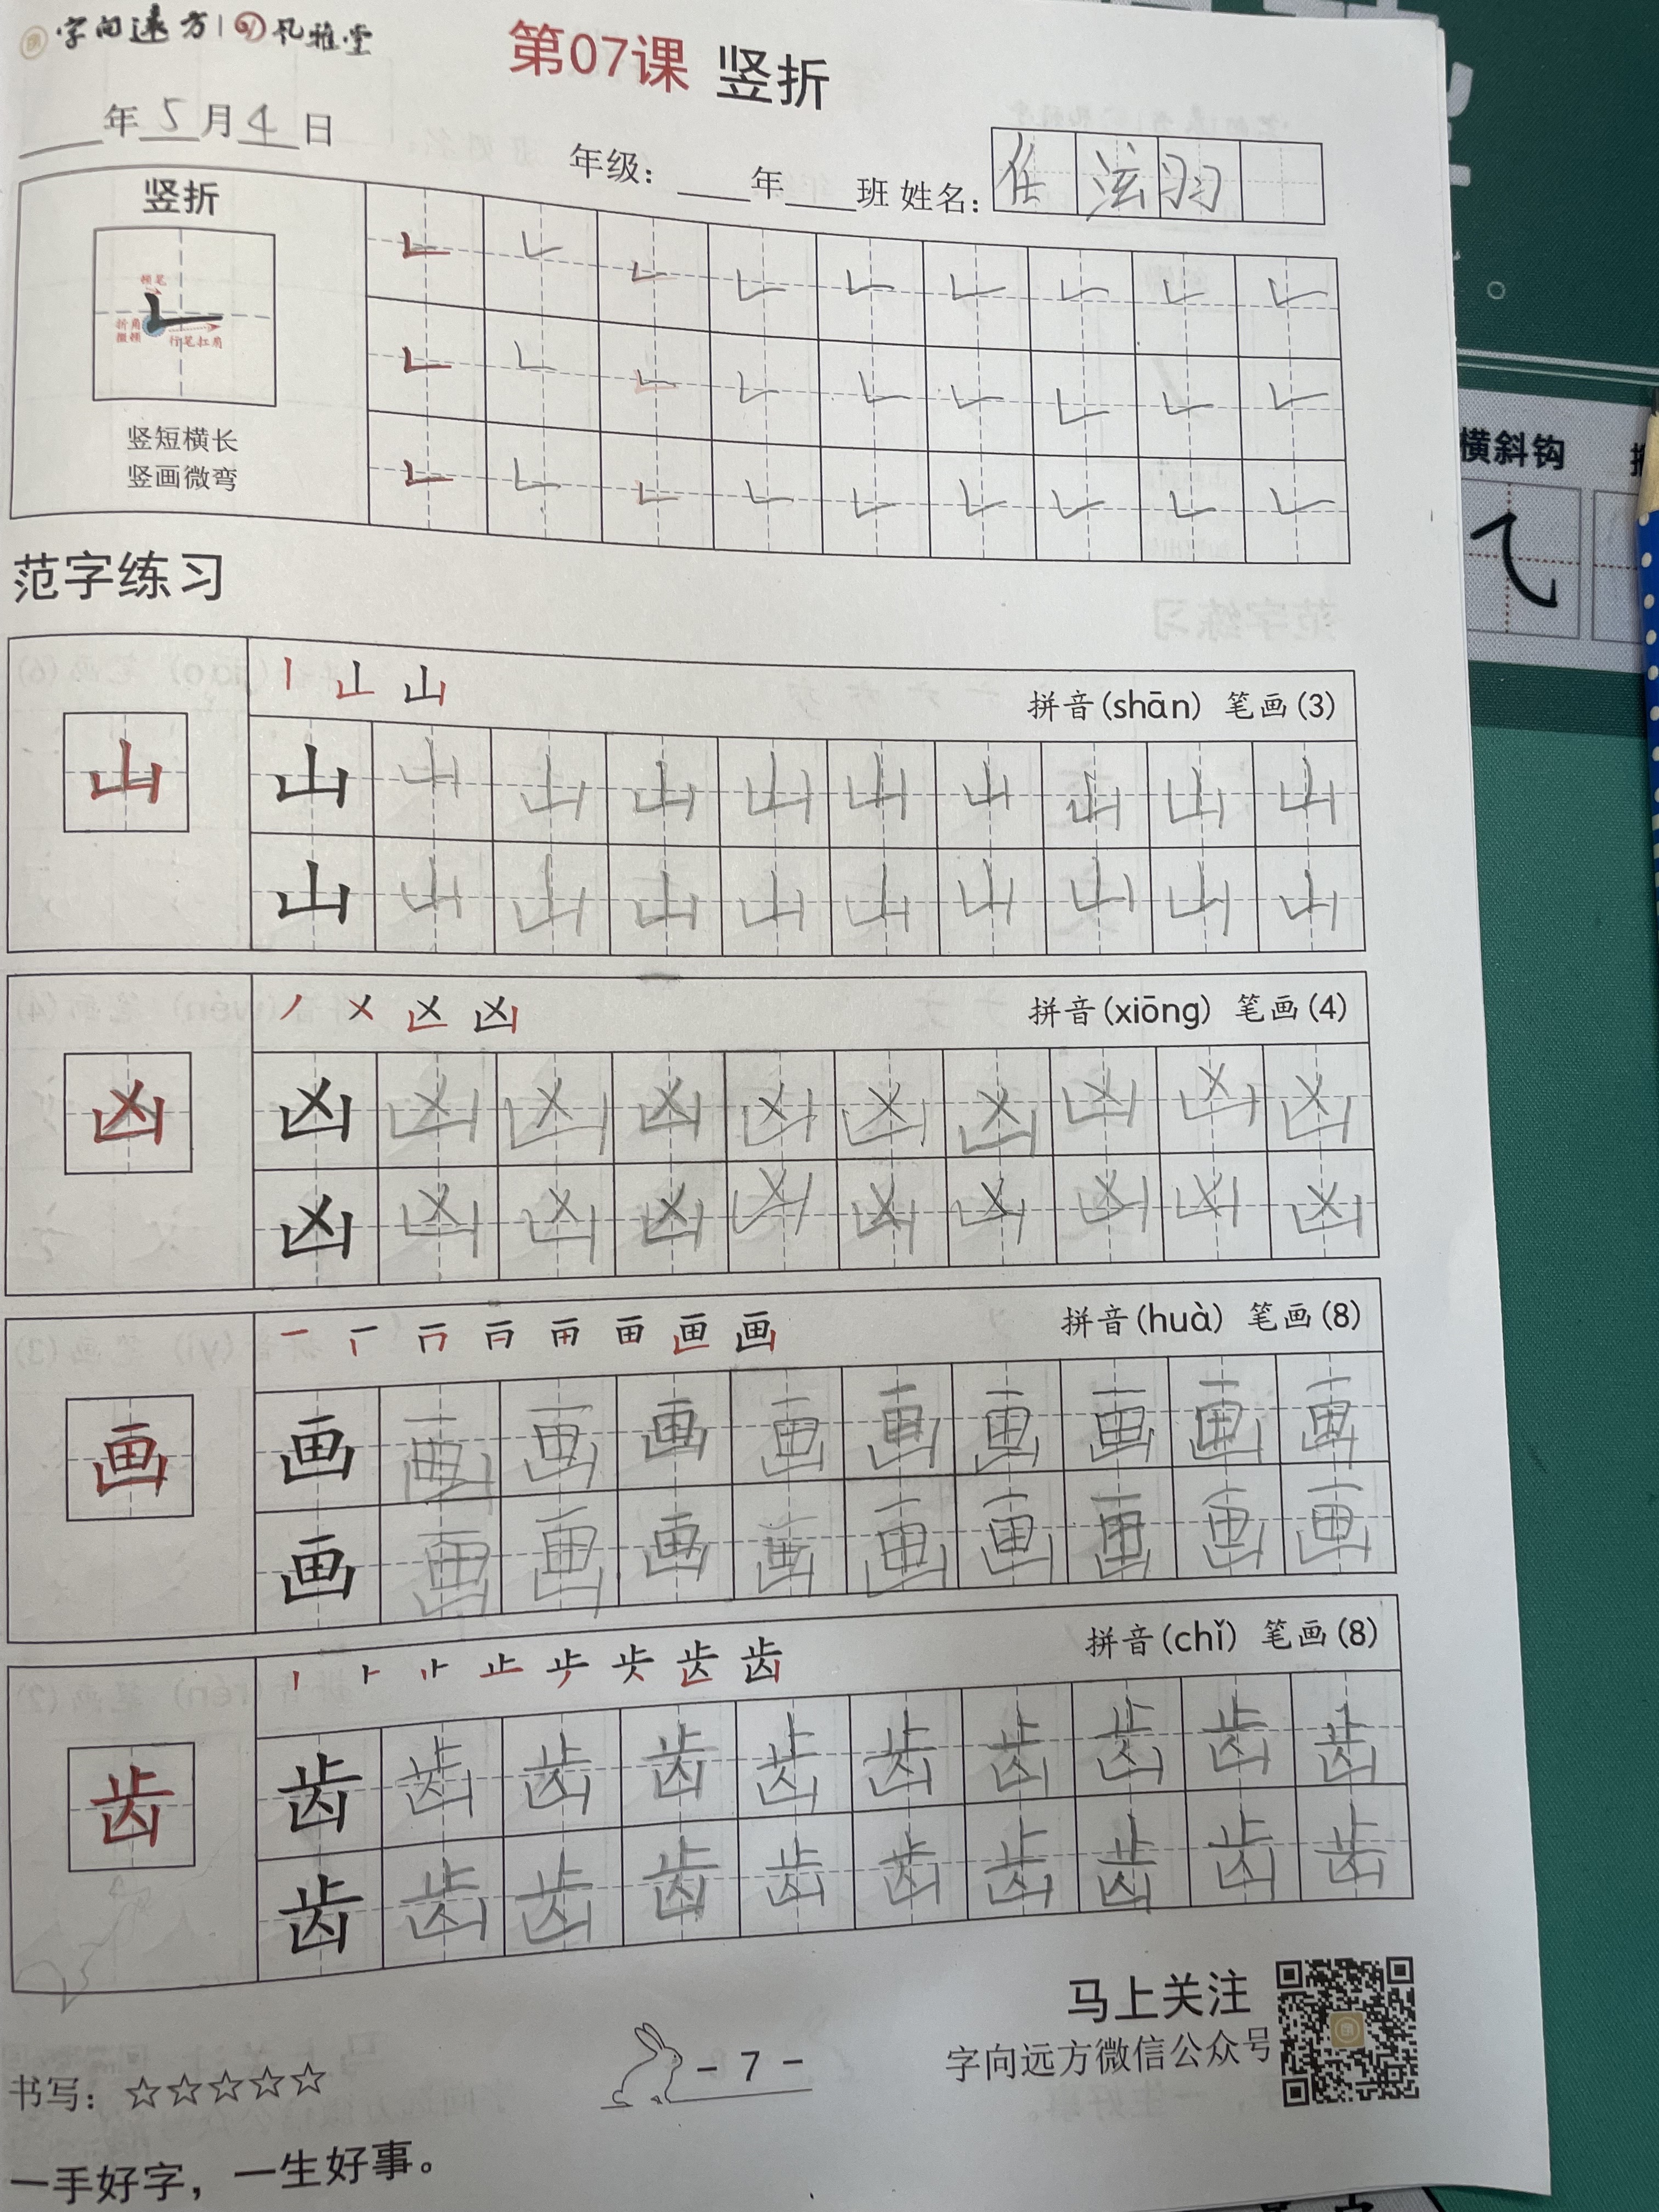 字向远方 | 风雅堂
第07课 竖折
年 5 月 4 日
年级: 年 班 姓名: 任 泫 羽
竖折
顿笔
折角
微顿
行笔扛肩
竖短横长
竖画微弯
横斜钩
范字练习
山 拼音(shān) 笔画(3)
山 山 山 山 山 山 山 山 山 山
山 山 山 山 山 山 山 山 山 山
凶 拼音(xiōng) 笔画(4)
凶 凶 凶 凶 凶 凶 凶 凶 凶 凶
凶 凶 凶 凶 凶 凶 凶 凶 凶 凶
画 拼音(huà) 笔画(8)
画 画 画 画 画 画 画 画 画 画
画 画 画 画 画 画 画 画 画 画
齿 拼音(chǐ) 笔画(8)
齿 齿 齿 齿 齿 齿 齿 齿 齿 齿
齿 齿 齿 齿 齿 齿 齿 齿 齿 齿
马上关注
字向远方微信公众号
书写: ☆☆☆☆☆
- 7 -
一手好字，一生好事。